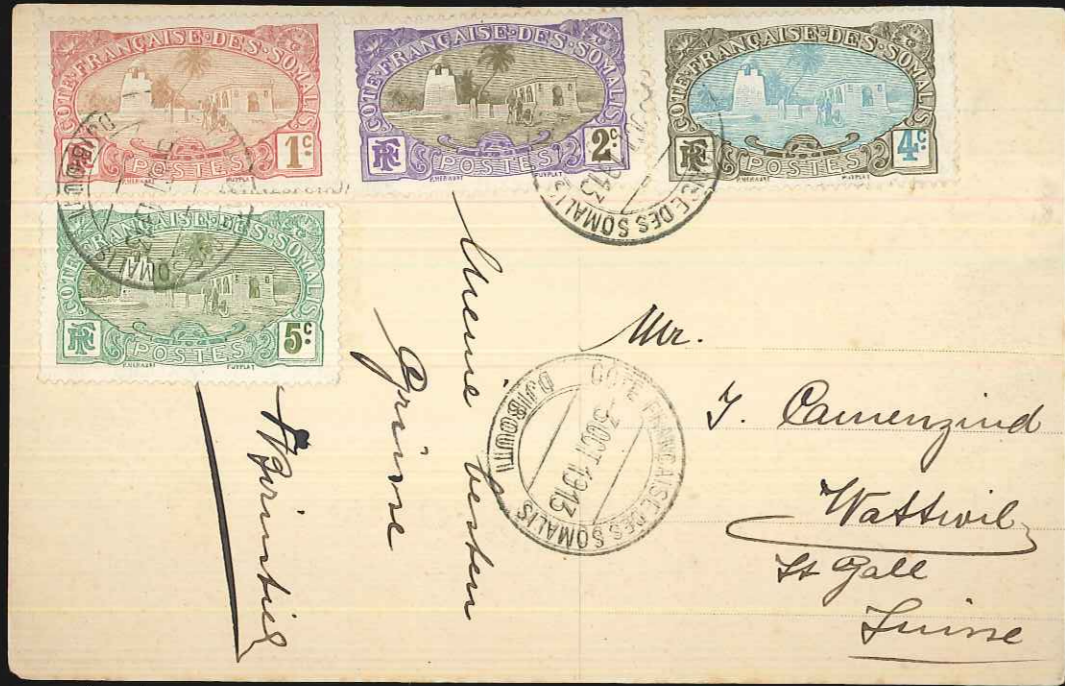 COTE·FRANÇAISE·DES·SOMALIS
1c.
RF
POSTES
COTE·FRANÇAISE·DES·SOMALIS
2c.
RF
POSTES
COTE·FRANÇAISE·DES·SOMALIS
4c.
RF
POSTES
COTE·FRANÇAISE·DES·SOMALIS
RF
5c.
POSTES
DJIBOUTI
SOMALIS
DES SOMALIS
1913
COTE FRANÇAISE DES SOMALIS
DJIBOUTI
OCT 1913
Meine besten
Grüsse
Mr.
J. Camenzind
Wattwil
St Gall
Suisse